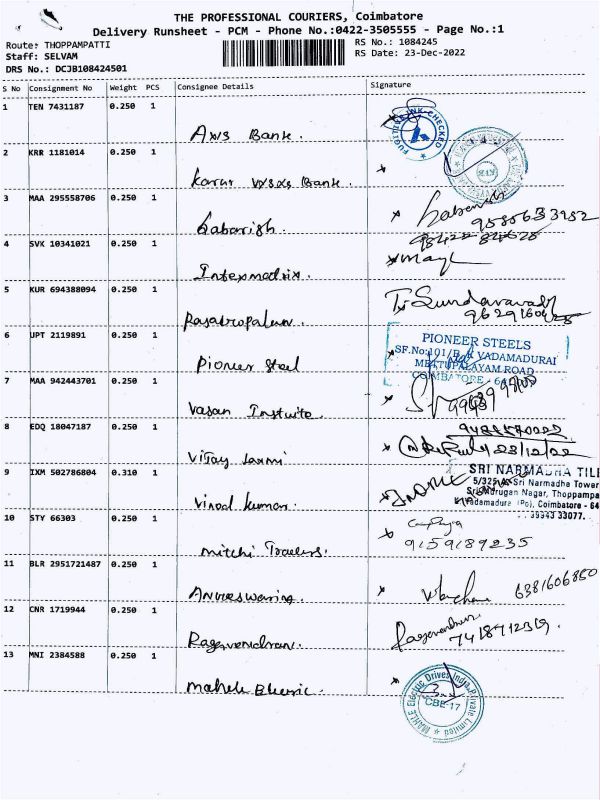 THE PROFESSIONAL COURIERS, Coimbatore
Delivery Runsheet - PCM - Phone No.:0422-3505555 - Page No.:1
Route: THOPPAMPATTI
RS No.: 1084245
Staff: SELVAM
RS Date: 23-Dec-2022
DRS No.: DCJB108424501
S No Consignment No Weight PCS Consignee Details Signature
1 TEN 7431187 0.250 1
Axis Bank.
FUGITIVE INK-CHECKED
2 KRR 1181014 0.250 1
Karur Vysya Bank.
3 MAA 295558706 0.250 1
Sabarish.
4 SVK 10341021 0.250 1
Intermatrix.
5 KUR 694388094 0.250 1
T. Sundaravady
6 UPT 2119891 0.250 1
Pioneer Steel
PIONEER STEELS
SF.No:101/B, VADAMADURAI
METTUPALAYAM ROAD
COIMBATORE - 64
7 MAA 942443701 0.250 1
Vasan
8 EDQ 18047187 0.250 1
Vijay Laxmi
23/12/22
9 IXM 502786804 0.310 1
Vinod Kumar.
SRI NARMADHA TILE
5/325 Sri Narmadha Tower
Sri Murugan Nagar, Thoppampa
Vadamadurai (Po), Coimbatore - 64
33077.
10 STY 66303 0.250 1
Mitchi Traders.
9159189235
11 BLR 2951721487 0.250 1
6381606860
12 CNR 1719944 0.250 1
Ragavendran.
Ragavendran
7418712319.
13 MNI 2384588 0.250 1
Mahele Electric.
MAHLE Electric Drives India Private Limited
CBE-17